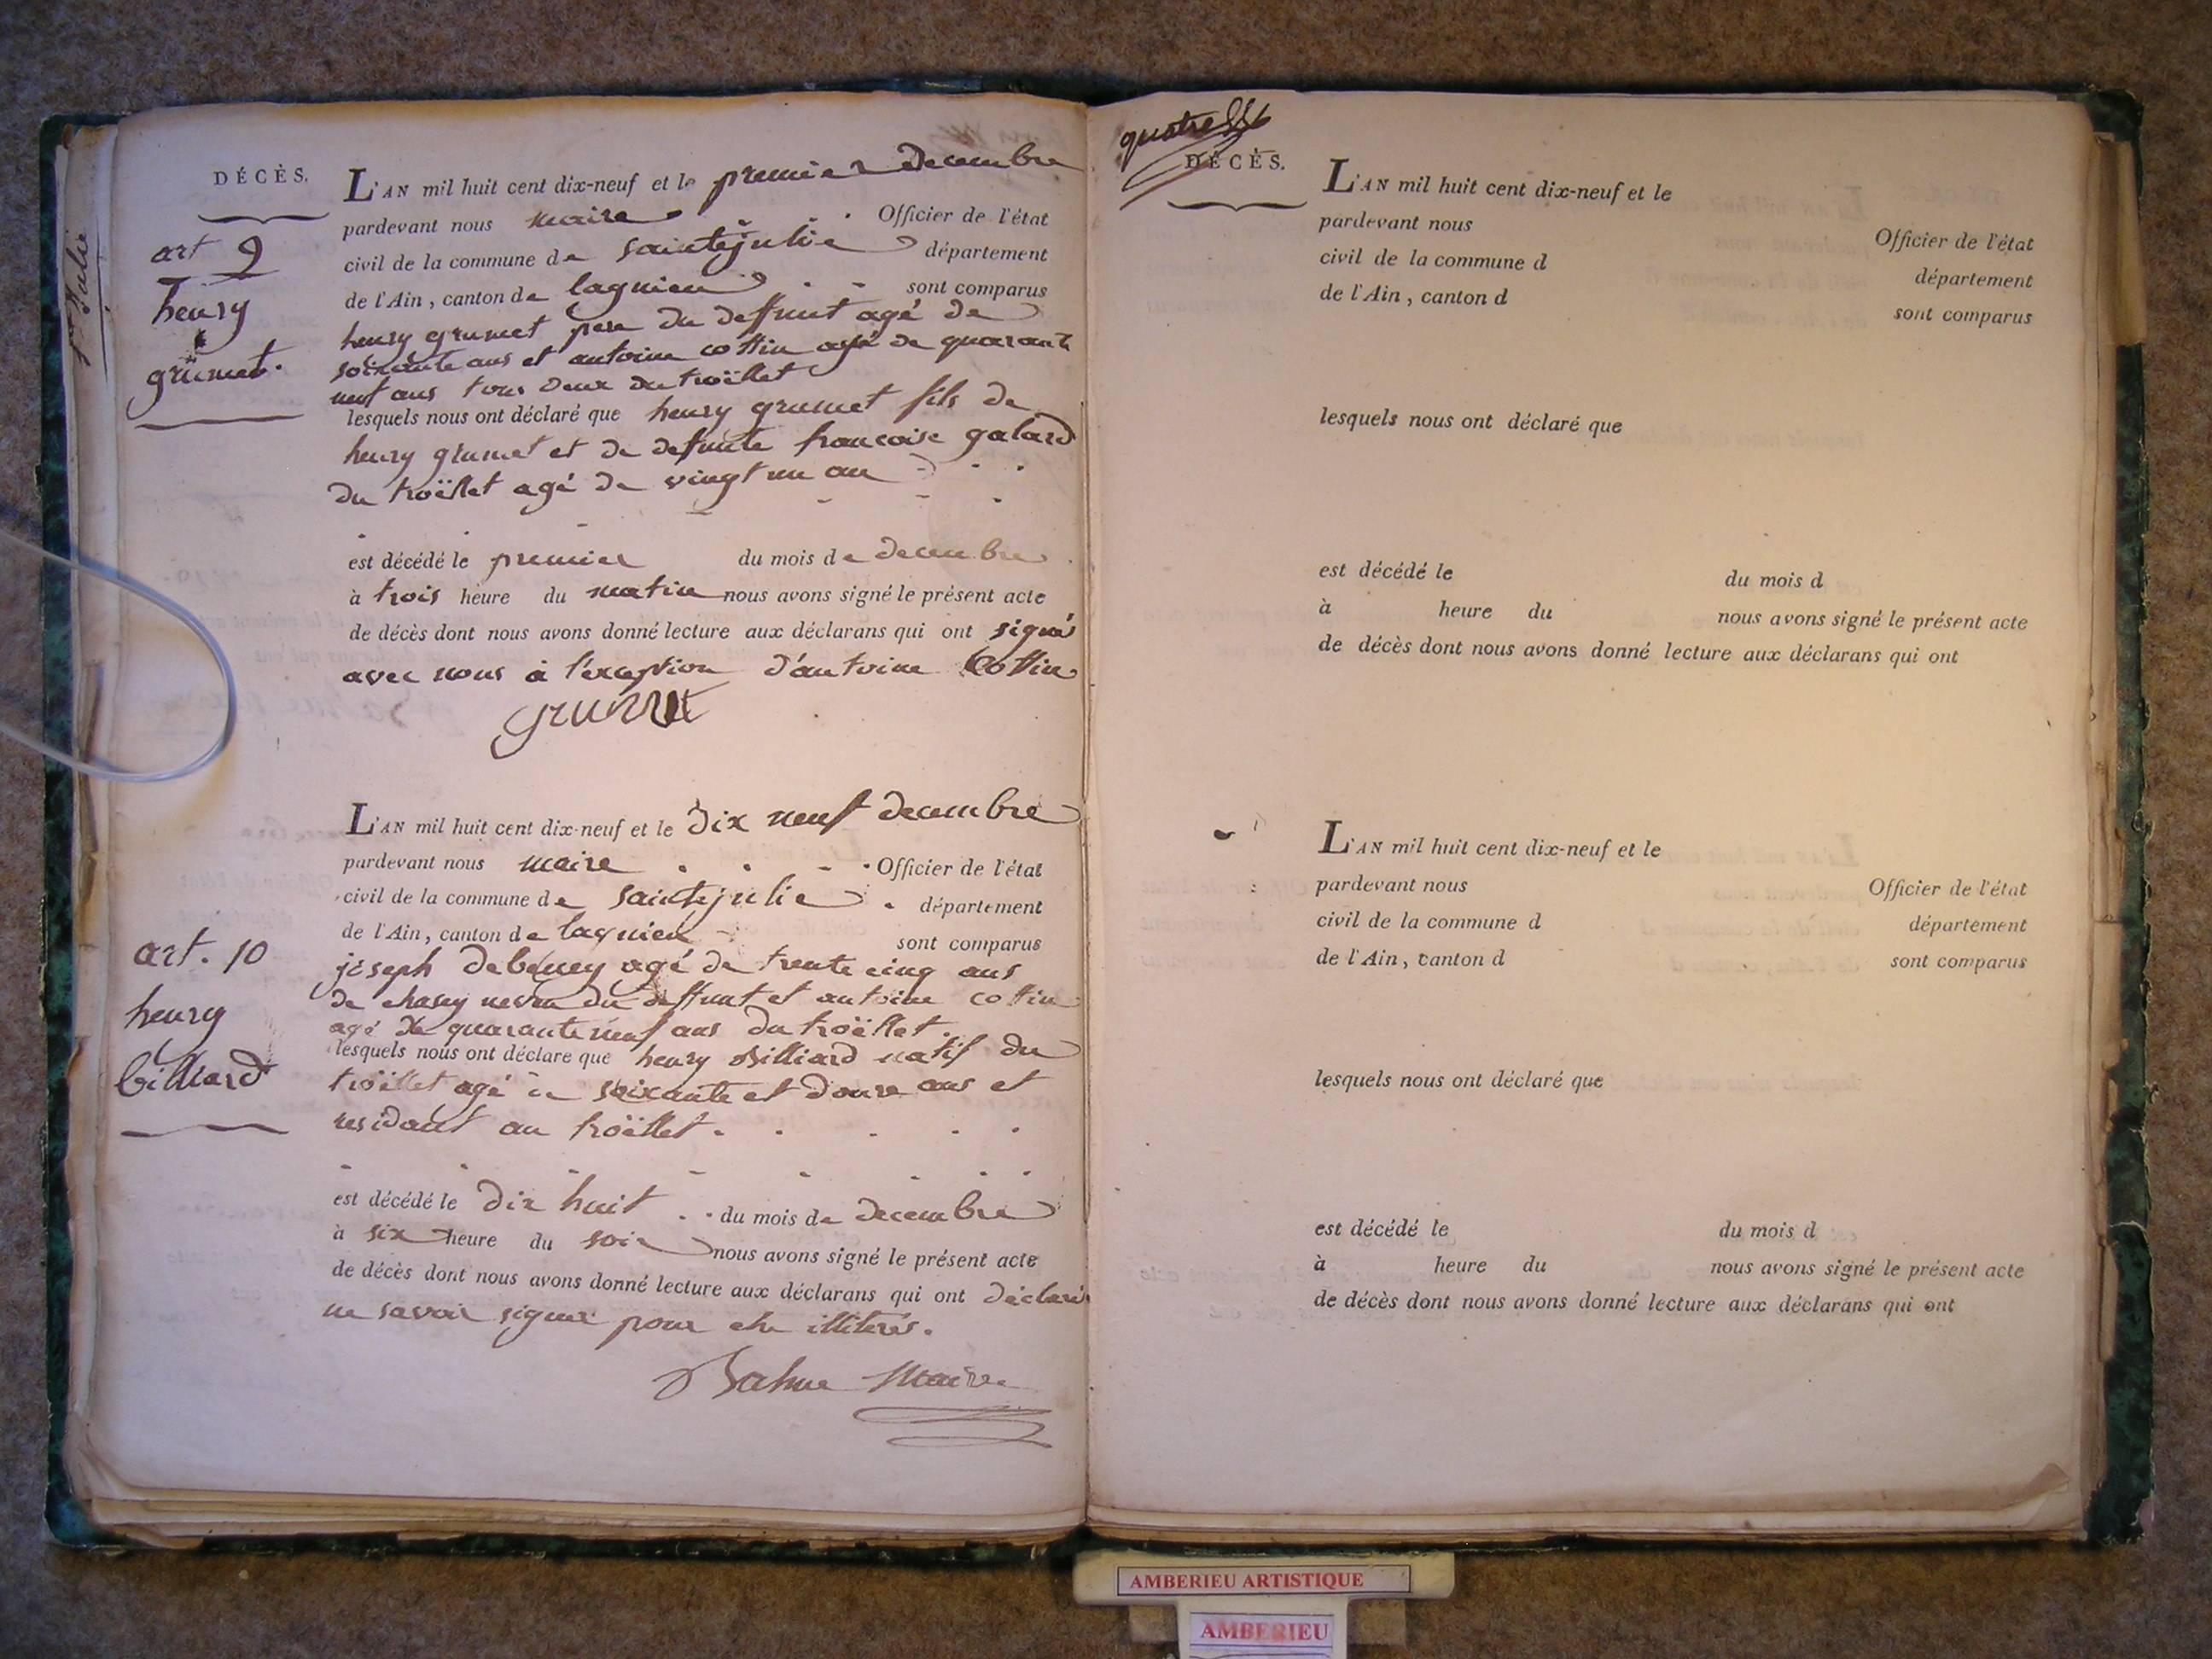 Ste Julie
DÉCÈS.
art 9
henry
grumet.
L'AN mil huit cent dix-neuf et le premier decembre
pardevant nous maire Officier de l'état
civil de la commune de saintejulie département
de l'Ain, canton de lagnieu sont comparus
henry grumet pere du deffunt agé de
soixante ans et antoine cottin agé de quarante
neuf ans tous deux du troëllet
lesquels nous ont déclaré que henry grumet fils de
henry grumet et de defunte francoise galard
du troëllet agé de vingt un an
est décédé le premier du mois de decembre
à trois heure du matin nous avons signé le présent acte
de décès dont nous avons donné lecture aux déclarans qui ont signé
avec nous à l'exception d'antoine Cottin
grumet
art. 10
henry
billiard
L'AN mil huit cent dix-neuf et le dix neuf decembre
pardevant nous maire Officier de l'état
civil de la commune de saintejulie département
de l'Ain, canton de lagnieu sont comparus
joseph debeney agé de trente cinq ans
de chasey neveu du deffunt et antoine cottin
agé de quarante neuf ans du troëllet
lesquels nous ont déclaré que henry Billiard natif du
troëllet agé de soixante et douze ans et
residant au troëllet.
est décédé le dix huit du mois de decembre
à six heure du soir nous avons signé le présent acte
de décès dont nous avons donné lecture aux déclarans qui ont déclarés
ne savoir signer pour etre illiterés.
maire
quatre
DÉCÈS.
L'AN mil huit cent dix-neuf et le
pardevant nous Officier de l'état
civil de la commune d département
de l'Ain, canton d sont comparus
lesquels nous ont déclaré que
est décédé le du mois d
à heure du nous avons signé le présent acte
de décès dont nous avons donné lecture aux déclarans qui ont
L'AN mil huit cent dix-neuf et le
pardevant nous Officier de l'état
civil de la commune d département
de l'Ain, canton d sont comparus
lesquels nous ont déclaré que
est décédé le du mois d
à heure du nous avons signé le présent acte
de décès dont nous avons donné lecture aux déclarans qui ont
AMBERIEU ARTISTIQUE
AMBERIEU